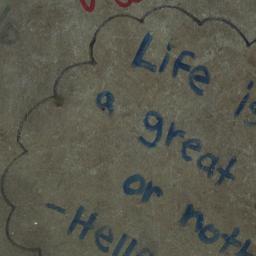 Life is
a great
or noth
-Helle